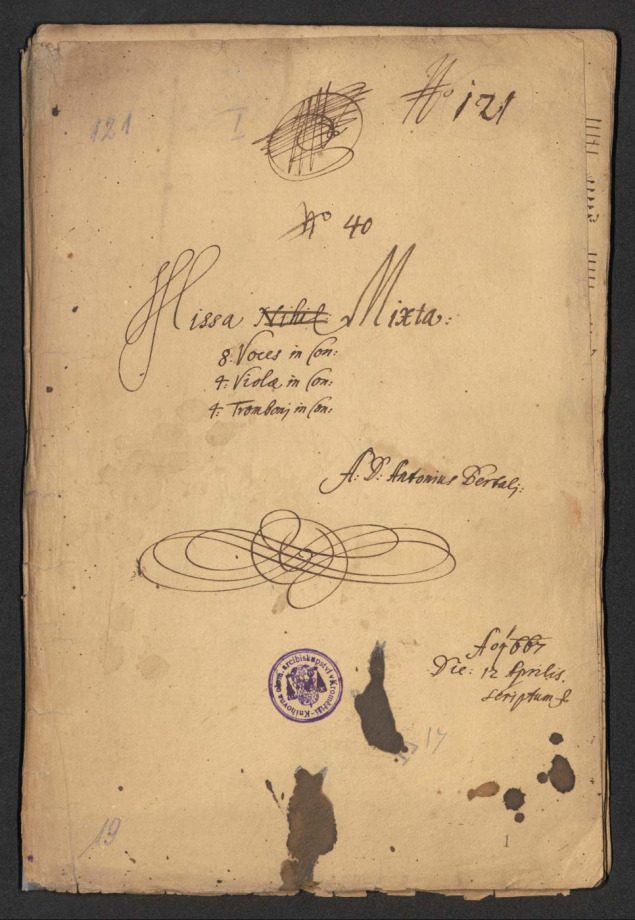 121
I
No 121
No 40
Missa Nihil Mixta:
8: Voces in Con:
4: Violæ in Con:
4: Tromboni in Con:
A: D: Antonius Bertali:
Ao 1667
Die: 12 Aprilis.
scriptum
Knihovna obém. arcibiskupství v Kroměříži
17
19
1